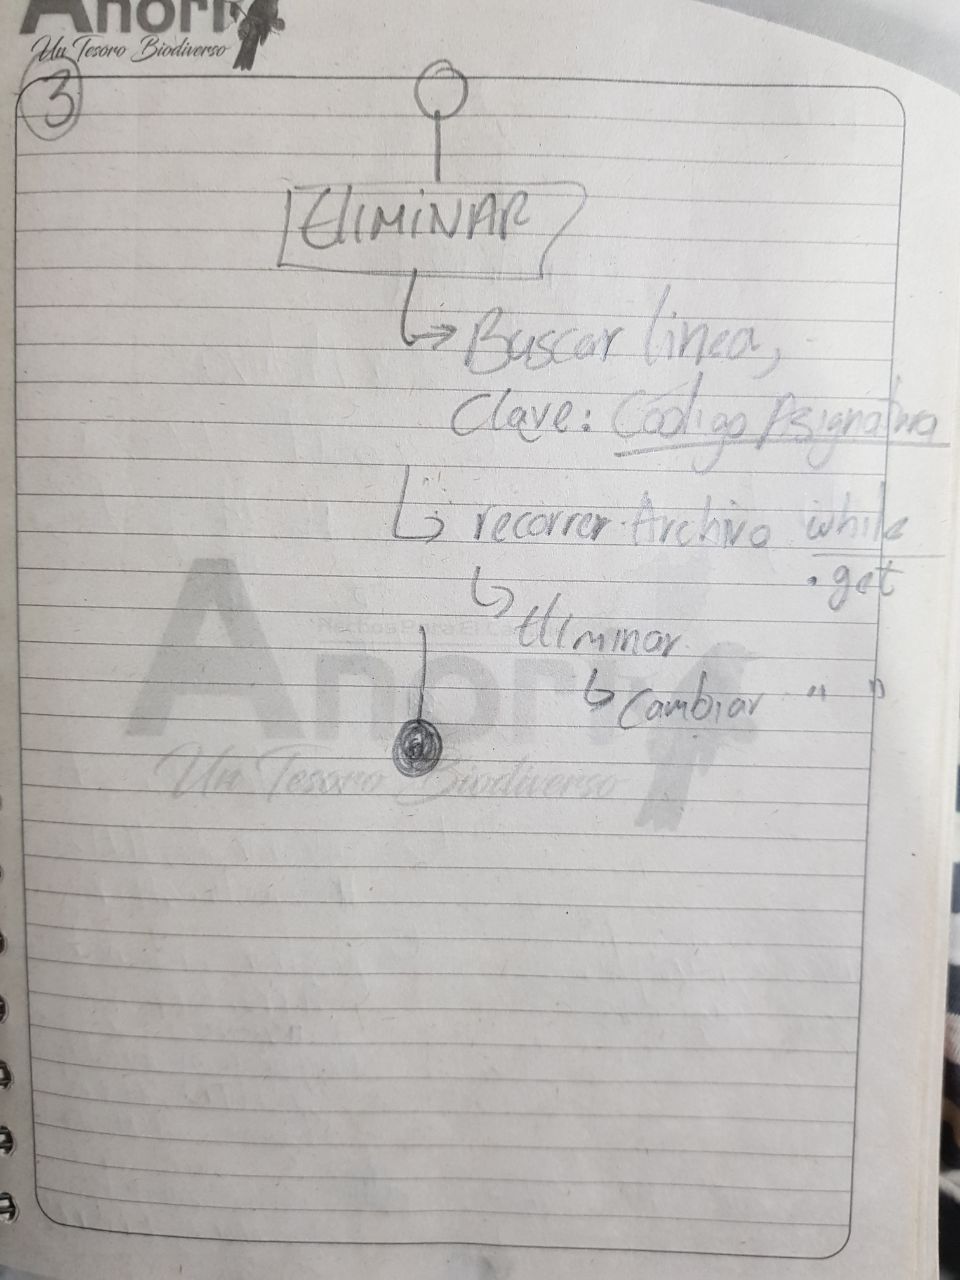 Anori
Un Tesoro Biodiverso
3
ELIMINAR
Buscar linea,
Clave: Código Asignatura
recorrer Archivo while
.get
Eliminar
Cambiar " "
Anori
Un Tesoro Biodiverso